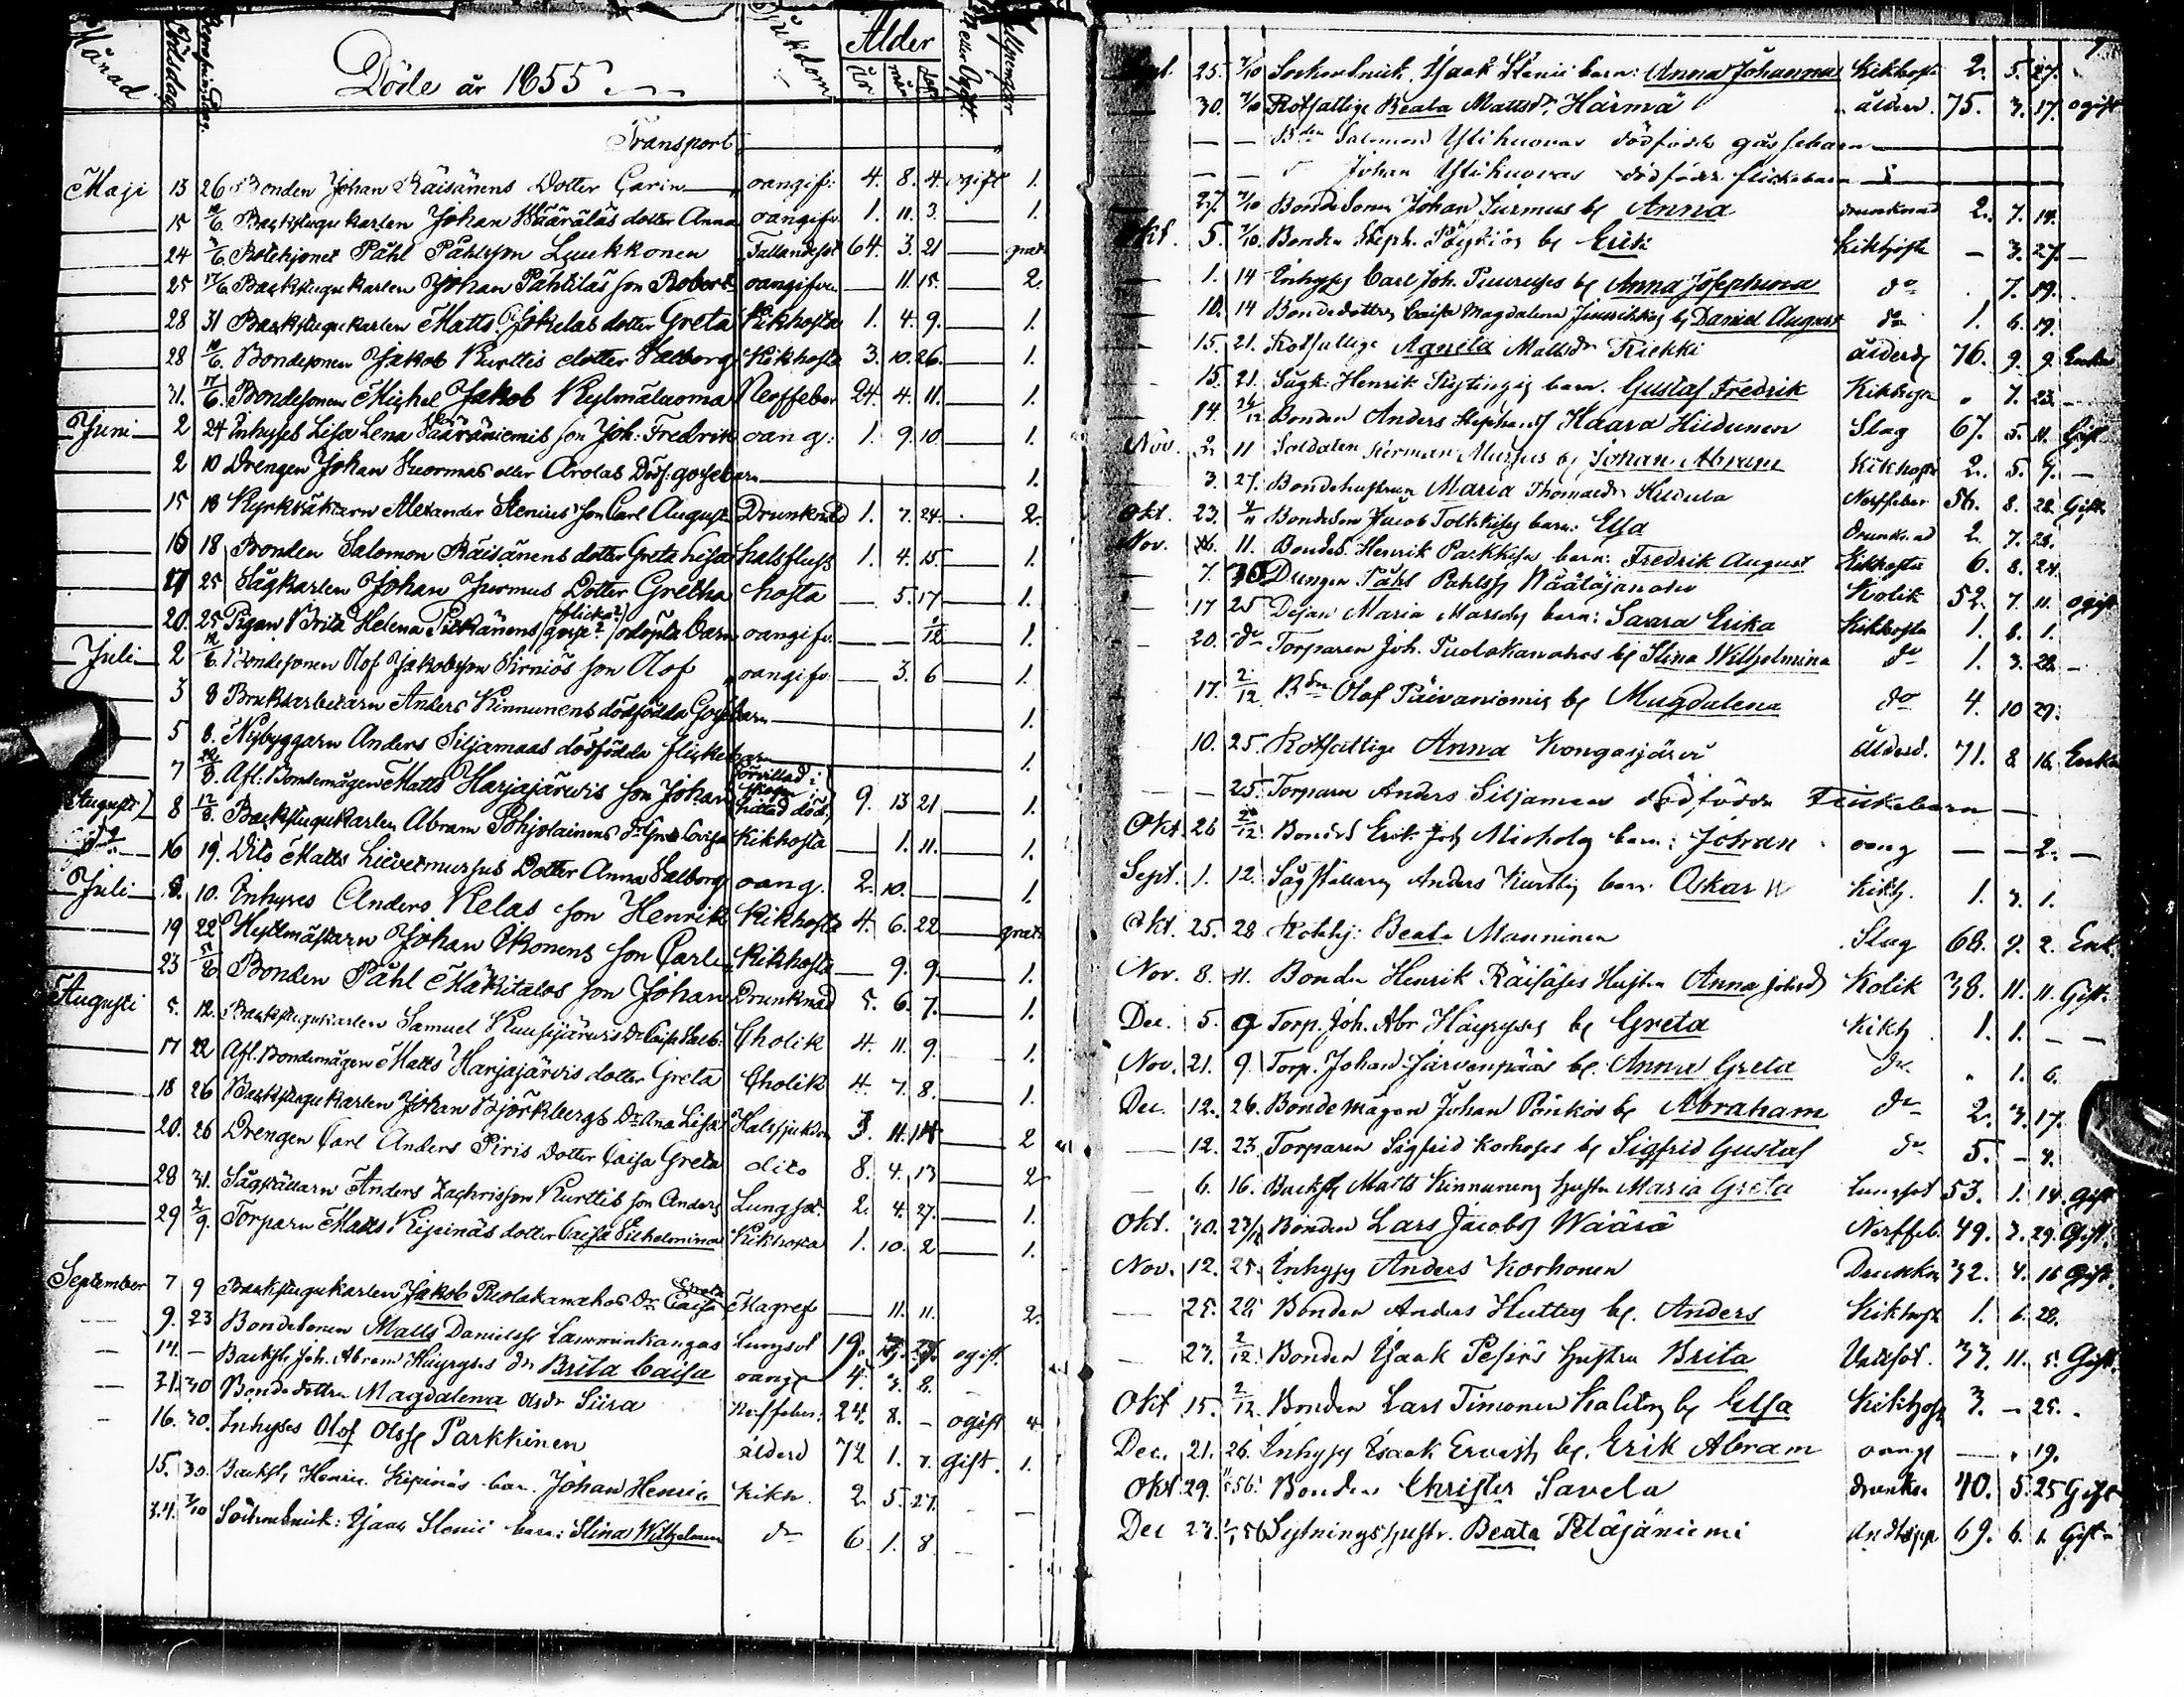 Månad Dödsdag Begrafningsdag Döde år 1855 Sjukdom Ålder År mån dag Gift eller Ogift.
Transport
Maji 13 26 Bonden Johan Räisänens Dotter Carin oangif: 4. 8. 4. ogift 1.
15 10/6. Backstugukarlen Johan Määräläs dotter Anna oangifv. 1. 11. 3. 1.
24 3/6 Rotehjonet Påhl Påhlsson Luukkonen Fallandesot 64. 3. 21 grat.
25 17/6 Backstugukarlen Johan Pähtiläs son Robert oangifven 11. 15. 2.
28 31 Backstugukarlen Matts Jokelas dotter Greta Kikhosta 1. 4. 9. 1.
28 10/6. Bondesonen Jakob Kurttis dotter Walborg Kikhosta 3. 10. 26. 1.
31. 17/6. Bondesonen Michel Jakob Kylmäluoma Nerffeber 24. 4. 11. 1.
Juni 2 24 Inhyses Lisa Lena Määräniemis son Joh: Fredrik oang: 1. 9. 10. 1.
2 10 Drengen Johan Wuormas eller Arolas Döf: gossebarn 1.
15 18 Kyrkväktarn Alexander Stenius son Carl August Drunknad 1. 7. 24. 2.
16 18 Bonden Salomon Räisänens dotter Greta Lisa halsfluss 1. 4. 15. 1.
17 25 Sågkarlen Johan Jurmus Dotter Gretha hosta 5. 17 1.
20. 25 Pigan Brita Helena Pitkänens (gosse? flicka?) odöpta barn oangifv. 1/12 1.
Juli 2 12/6. Bondesonen Olof Jakobsson Sirniös son Olof oangifv. 3. 6 1.
3 8 Bruksarbetarn Anders Kinnunens dödfödda Gossebarn 1.
5 8. Nybyggarn Anders Siljamaas dödfödda flickebarn 1.
7 12/8. Afl: Bondemågen Matts Harjajärvis son Johan förvillad i skogen hittad död. 9. 13 21 1.
(Augusti) 8 12/8. Backstugukarlen Abram Pohjolainens Dr Greta Lovisa Kikhosta 1. 11. 1.
do 16 19. Dito Matts Lievetmursus Dotter Anna Walborg oang. 2. 10. 1.
Juli 8. 10. Inhyses Anders Kelas son Henrik Kikhosta 4. 6. 22 grat.
19 22 Hyttmästarn Johan Ikonens son Carl Kikhosta 9. 9. 1.
23 5/8 Bonden Påhl Mäkitalos son Johan Drunknad 5. 6. 7. 1.
Augusti 5. 12. Backstugukarlen Samuel Kuusijärvis Dr Caisa Walb: Cholik 4. 11. 9. 1.
17 22 Afl. Bondemågen Matts Harjajärvis dotter Greta Cholik 4. 7. 8. 1.
18 26 Backstugukarlen Johan Björkbergs Dr Ana Lisa Halssjukdom 3. 11. 14 2
20. 26 Drengen Carl Anders Piris Dotter Caisa Greta dito 8. 4. 13 2
28 31. Sågställarn Anders Zachrisson Kurttis son Anders Lungsot. 2. 4. 27. 1.
29 2/9 Torparn Matts Kipinäs dotter Caisa Wilhelmina Kikhosta 1. 10. 2 1.
September 7 9 Backstugukarlen Jakob Puolakanahos Dr Greta Caisa Magref 11. 11. 2.
9. 23 Bondesonen Matts Danielss. Lamminkangas Lungsot 19. ogift.
14. — Backst. Joh. Abram Häyryses dr Brita Caisa oangf 4. 3. 8.
21. 30 Bondedottren Magdalena Olsdr Siira Nerffeber: 24. 8. – ogift 4
16. 30. Inhyses Olof Olss. Parkkinen ålderd 72 1. 7. Gift. 1.
15. 30. Backst. Henric Kipinäs bar. Johan Henric Kikh. 2. 5. 27.
24. 7/10 Sockneskick: Isaac Stenii barn: Stina Wilhelmina do 6. 1. 8.
Sept. 25. 7/10 Sockneskick. Isaak Stenii barn: Anna Johanna Kikhosta 2. 5. 27.
30. 7/10 Rotfattige Beata Mattsdr Härmä ålderd. 75. 3. 17. ogift
— — Bden Salomon Ylikuovas dödfödde gossebarn
— — Johan Ylikuovas dödfödda flickebarn
27. 7/10 Bondesonen Johan Jurmus bf Anna drunknad 2. 7. 14.
Okt. 5. 7/10. Bonden Steph. bf Erik Kikhosta – 3. 27. –
1. 14 Inhyses Carl Joh. bf Anna Josephina do 7. 19.
10. 14 Bondedottren Caisa Magdalena bf Daniel August do 1. 6. 19.
15. 21. Rotfattige Agneta Mattsdr Riekki ålderd 76. 9. 9. Enka
15. 21. Sågk: Henrik barn. Gustaf Fredrik Kikhosta 7. 23.
14. Bonden Anders Haara Hildunen Slag 67. 5. 11. Gift
Nov. 2. 11 Soldaten Herman Mursus bf Johan Abram Kikhosta 2. 5. 7. –
3. 27. Bondehustrun Maria Thomasdr Kildula Nerffeber 56. 8. 28. Gift
Okt. 23. Bondeson Jacob Tolkkis barn: Elsa drunknad 2. 7. 28.
Nov. 11. Bondes. Henrik Parkkis barn: Fredrik August Kikhosta 6. 8. 24.
7. Drengen Påhl Pahlss Näätäjänaho Kolik 52. 7. 11. ogift
17 25 Dejan Maria barn: Saara Erika Kikhosta 1. 8. 1.
20. do Torparen Joh. Puolakanahos bf Stina Wilhelmina do 1. 3. 28. –
17. 2/12 Bdn Olof Päivaniemis bf Magdalena do 4. 10 29.
10. 25. Rotfattige Anna Kongasjärvi ålderd. 71. 8. 16. Enka
— — 25. Torparn Anders Siljamaas dödfödde Flickebarn —
Okt. 26 Bondes Erik Joh barn: Johan oang — — 2. —
Sept. 1. 12. Sågställaren Anders Kurttis barn Oskar W Kikh. 1. 3. 1.
Okt. 25. 28 Rotehj: Beata Manninen Slag 68. 9. 2. Enk.
Nov. 8. 11. Bonden Henrik Räisäses Hustru Anna Kolik 38. 11. 11. Gift.
Dec. 5. 9 Torp. Joh. Abr. Häyryses bf Greta Kikh 1. 1. – –
Nov. 21. 9. Torp. Johan Järvenpääs bf. Anna Greta do 1. 6.
Dec. 12. 26. Bondemågen Johan Pönkös bf Abraham do 2. 3. 17.
— 12. 23 Torparen Sigfrid Korhoses bf Sigfrid Gustaf do 5. – 4.
— 6. 16. Backst. Matts Kinnunens hustru Maria Greta Lungsot 53. 1. 14. Gift
Okt. 30. Bonden Lars Jacobs Wäärä Nerffeb. 49. 2. 29. Gift.
Nov. 12. 25. Inhyses Anders Korhonen Drunkn. 32. 4. 16 Gift
— 25. 25. Bonden Anders Huttus bf. Anders Kikhosta 1. 6. 28.
— 27. 2/12. Bonden Isaak Pesiös hustru Brita Vattsot. 33. 11. 5. Gift.
Okt 15. 2/12. Bonden Lars Timonen bf Elsa Kikhost 3. – 25.
Dec. 21. 26. Inhyses Isaak bf. Erik Abram oangf — 19.
Okt 29. Bonden Christer Savela drunkn 40. 5. 25 Gift
Dec 27. 56 Sytningshustr. Beata Petäjäniemi Andtäppa 69. 6. 1. Gift